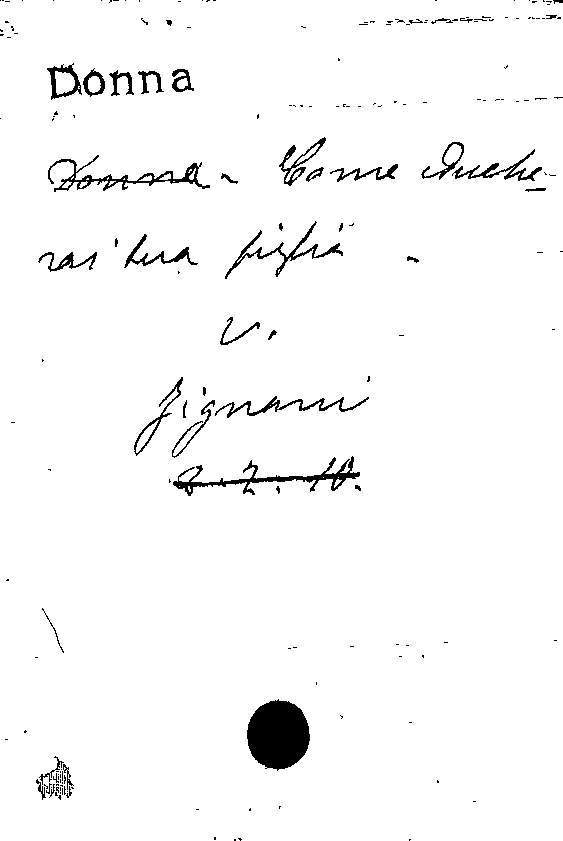 Donna
Donna - Come eduche-
rai tua figlia -
v.
Zignani
2.7.10.